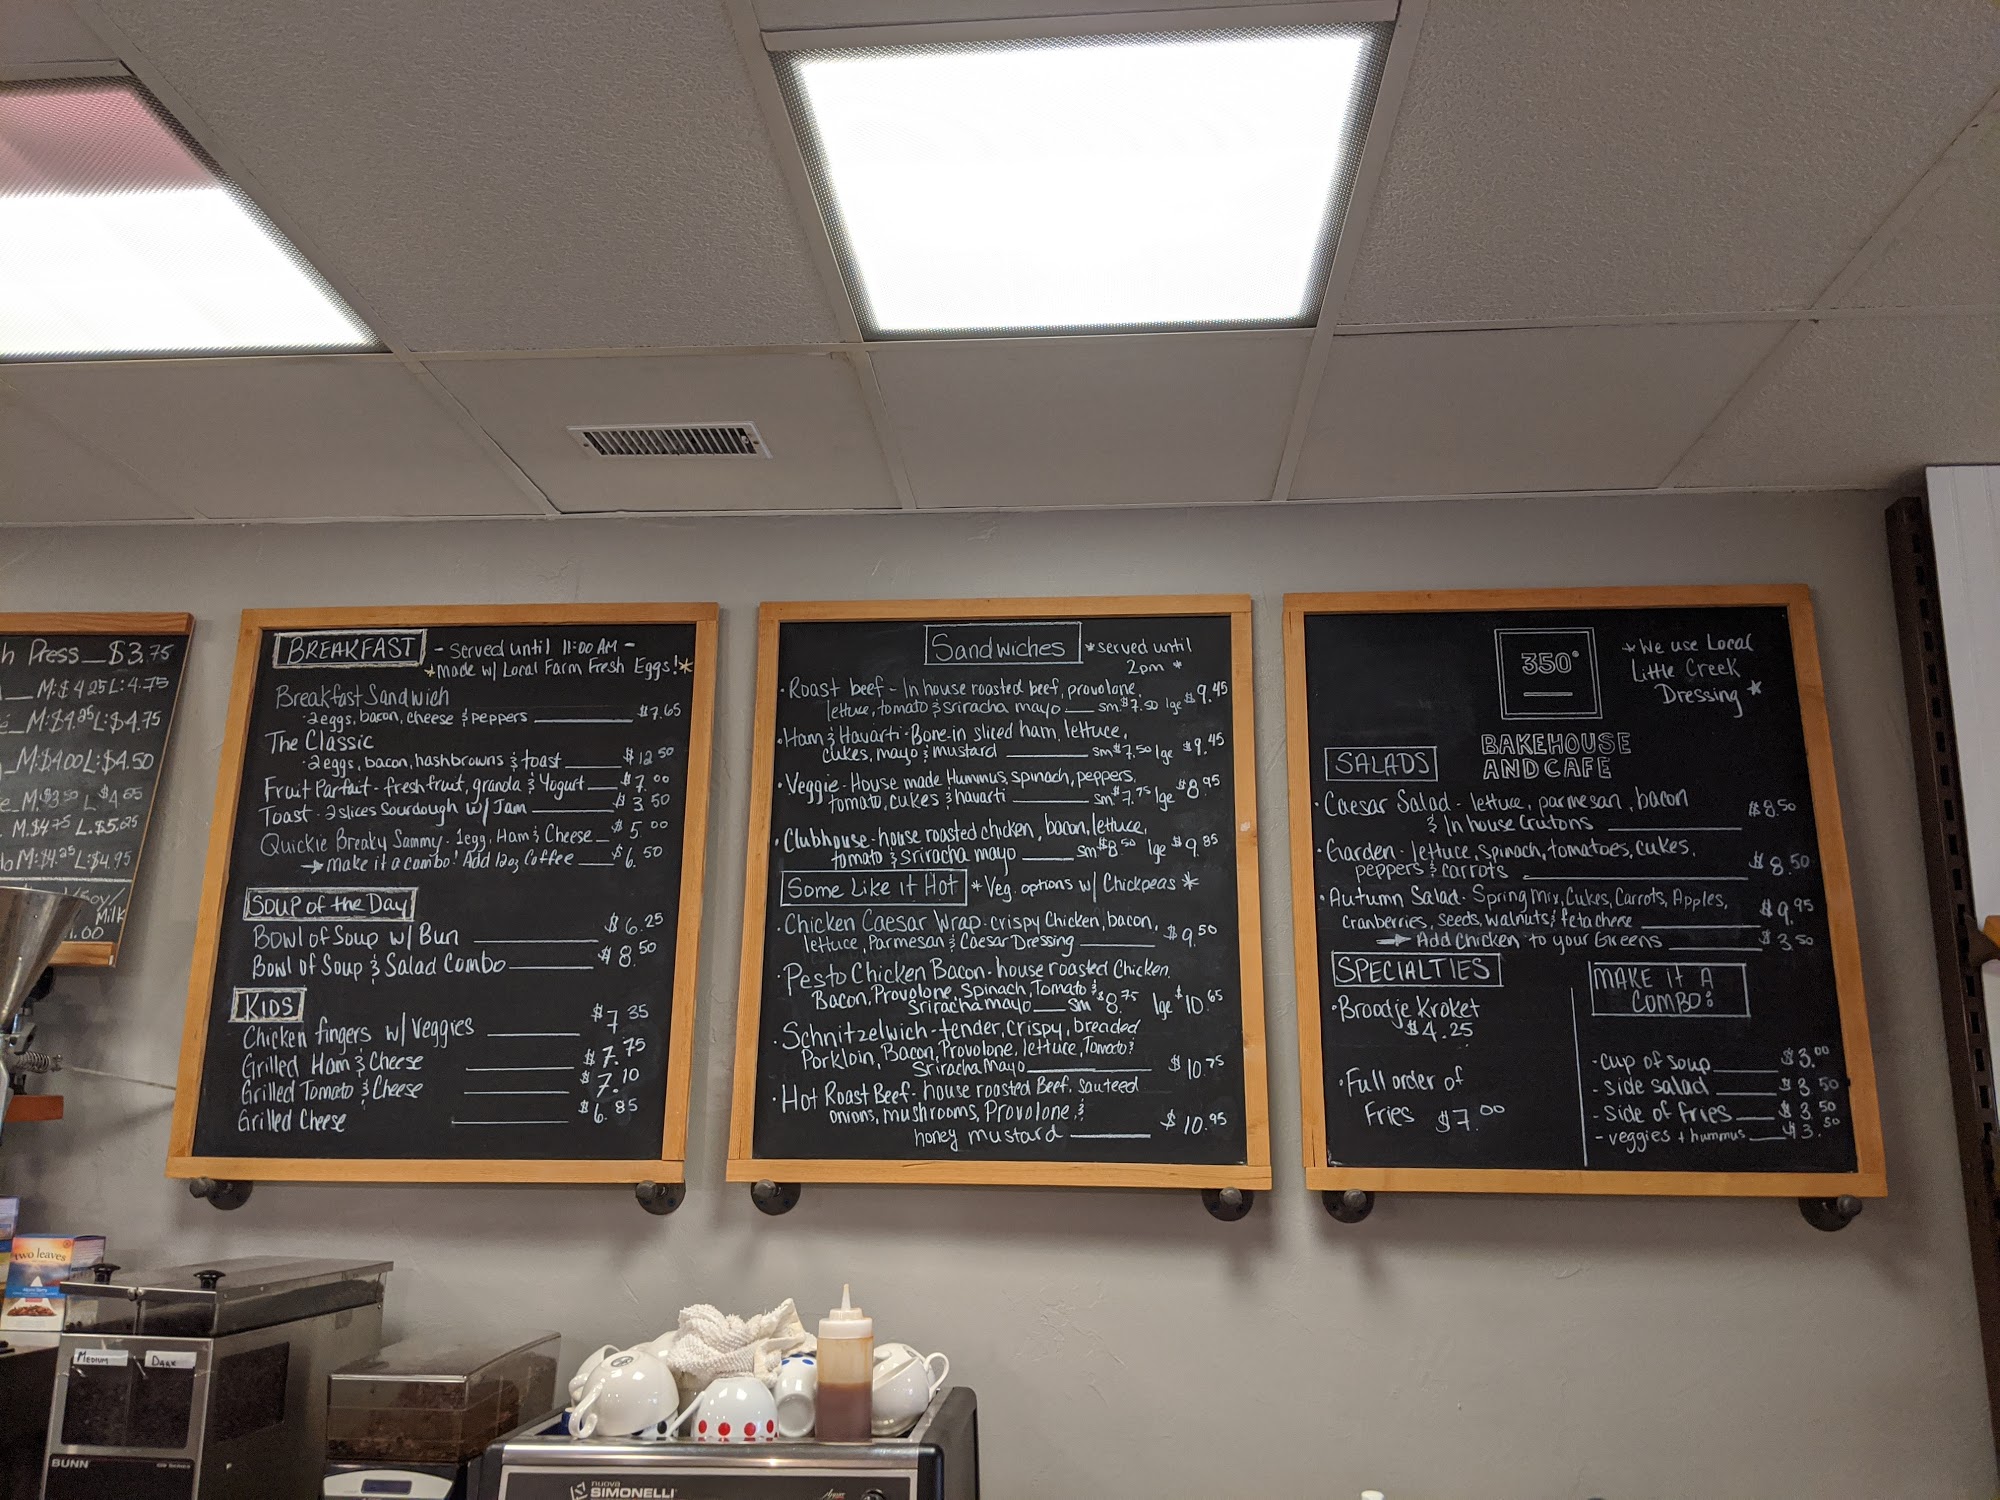 h Press $3.75
M:$4.25 L:4.75
M:$4.25 L:$4.75
M:$4.00 L:$4.50
M:$3.50 L:$4.55
M:$4.75 L:$5.25
M:$4.25 L:$4.95
Soy/
Milk
BREAKFAST - Served until 11:00 AM -
*made w/ Local Farm Fresh Eggs!*
Breakfast Sandwich
·2eggs, bacon, cheese & peppers $7.65
The Classic
·2eggs, bacon, hashbrowns & toast $12.50
Fruit Parfait - fresh fruit, granola & Yogurt $7.00
Toast - 2 slices Sourdough w/ Jam $3.50
Quickie Breaky Sammy - 1egg, Ham & Cheese $5.00
→ make it a combo! Add 12oz Coffee $6.50
Soup of the Day
Bowl of Soup w/ Bun $6.25
Bowl of Soup & Salad Combo $8.50
KIDS
Chicken fingers w/ Veggies $7.35
Grilled Ham & Cheese $7.75
Grilled Tomato & Cheese $7.10
Grilled Cheese $6.85
Sandwiches *served until
2pm *
·Roast beef - In house roasted beef, provolone,
lettuce, tomato & Sriracha mayo sm $7.50 lge $9.45
·Ham & Havarti - Bone-in sliced ham, lettuce,
cukes, mayo & mustard sm $7.50 lge $9.45
·Veggie - House made Hummus, spinach, peppers,
tomato, cukes & havarti sm $7.75 lge $8.95
·Clubhouse - house roasted chicken, bacon, lettuce,
tomato & Sriracha mayo sm $8.50 lge $9.85
Some Like it Hot *Veg. options w/ Chickpeas*
·Chicken Caesar Wrap - crispy Chicken, bacon,
lettuce, Parmesan & Caesar Dressing $9.50
·Pesto Chicken Bacon - house roasted Chicken,
Bacon, Provolone, Spinach, Tomato &
Sriracha mayo sm $8.75 lge $10.65
·Schnitzelwich - tender, crispy, breaded
Porkloin, Bacon, Provolone, lettuce, Tomato &
Sriracha Mayo $10.75
·Hot Roast Beef - house roasted Beef, sauteed
onions, mushrooms, Provolone, &
honey mustard $10.95
350°
BAKEHOUSE
AND CAFE
*We use Local
Little Creek
Dressing*
SALADS
·Caesar Salad - lettuce, parmesan, bacon
& In house Crutons $8.50
·Garden - lettuce, Spinach, tomatoes, cukes,
peppers & carrots $8.50
·Autumn Salad - Spring Mix, Cukes, Carrots, Apples,
Cranberries, Seeds, Walnuts & feta cheese $9.95
→ Add Chicken to your Greens $3.50
SPECIALTIES
·Broodje Kroket
$4.25
·Full order of
Fries $7.00
MAKE it A
COMBO:
-Cup of Soup $3.00
-Side Salad $3.50
-Side of Fries $3.50
-veggies + hummus $3.50
two leaves
MEDIUM
DARK
BUNN
nuova
SIMONELLI